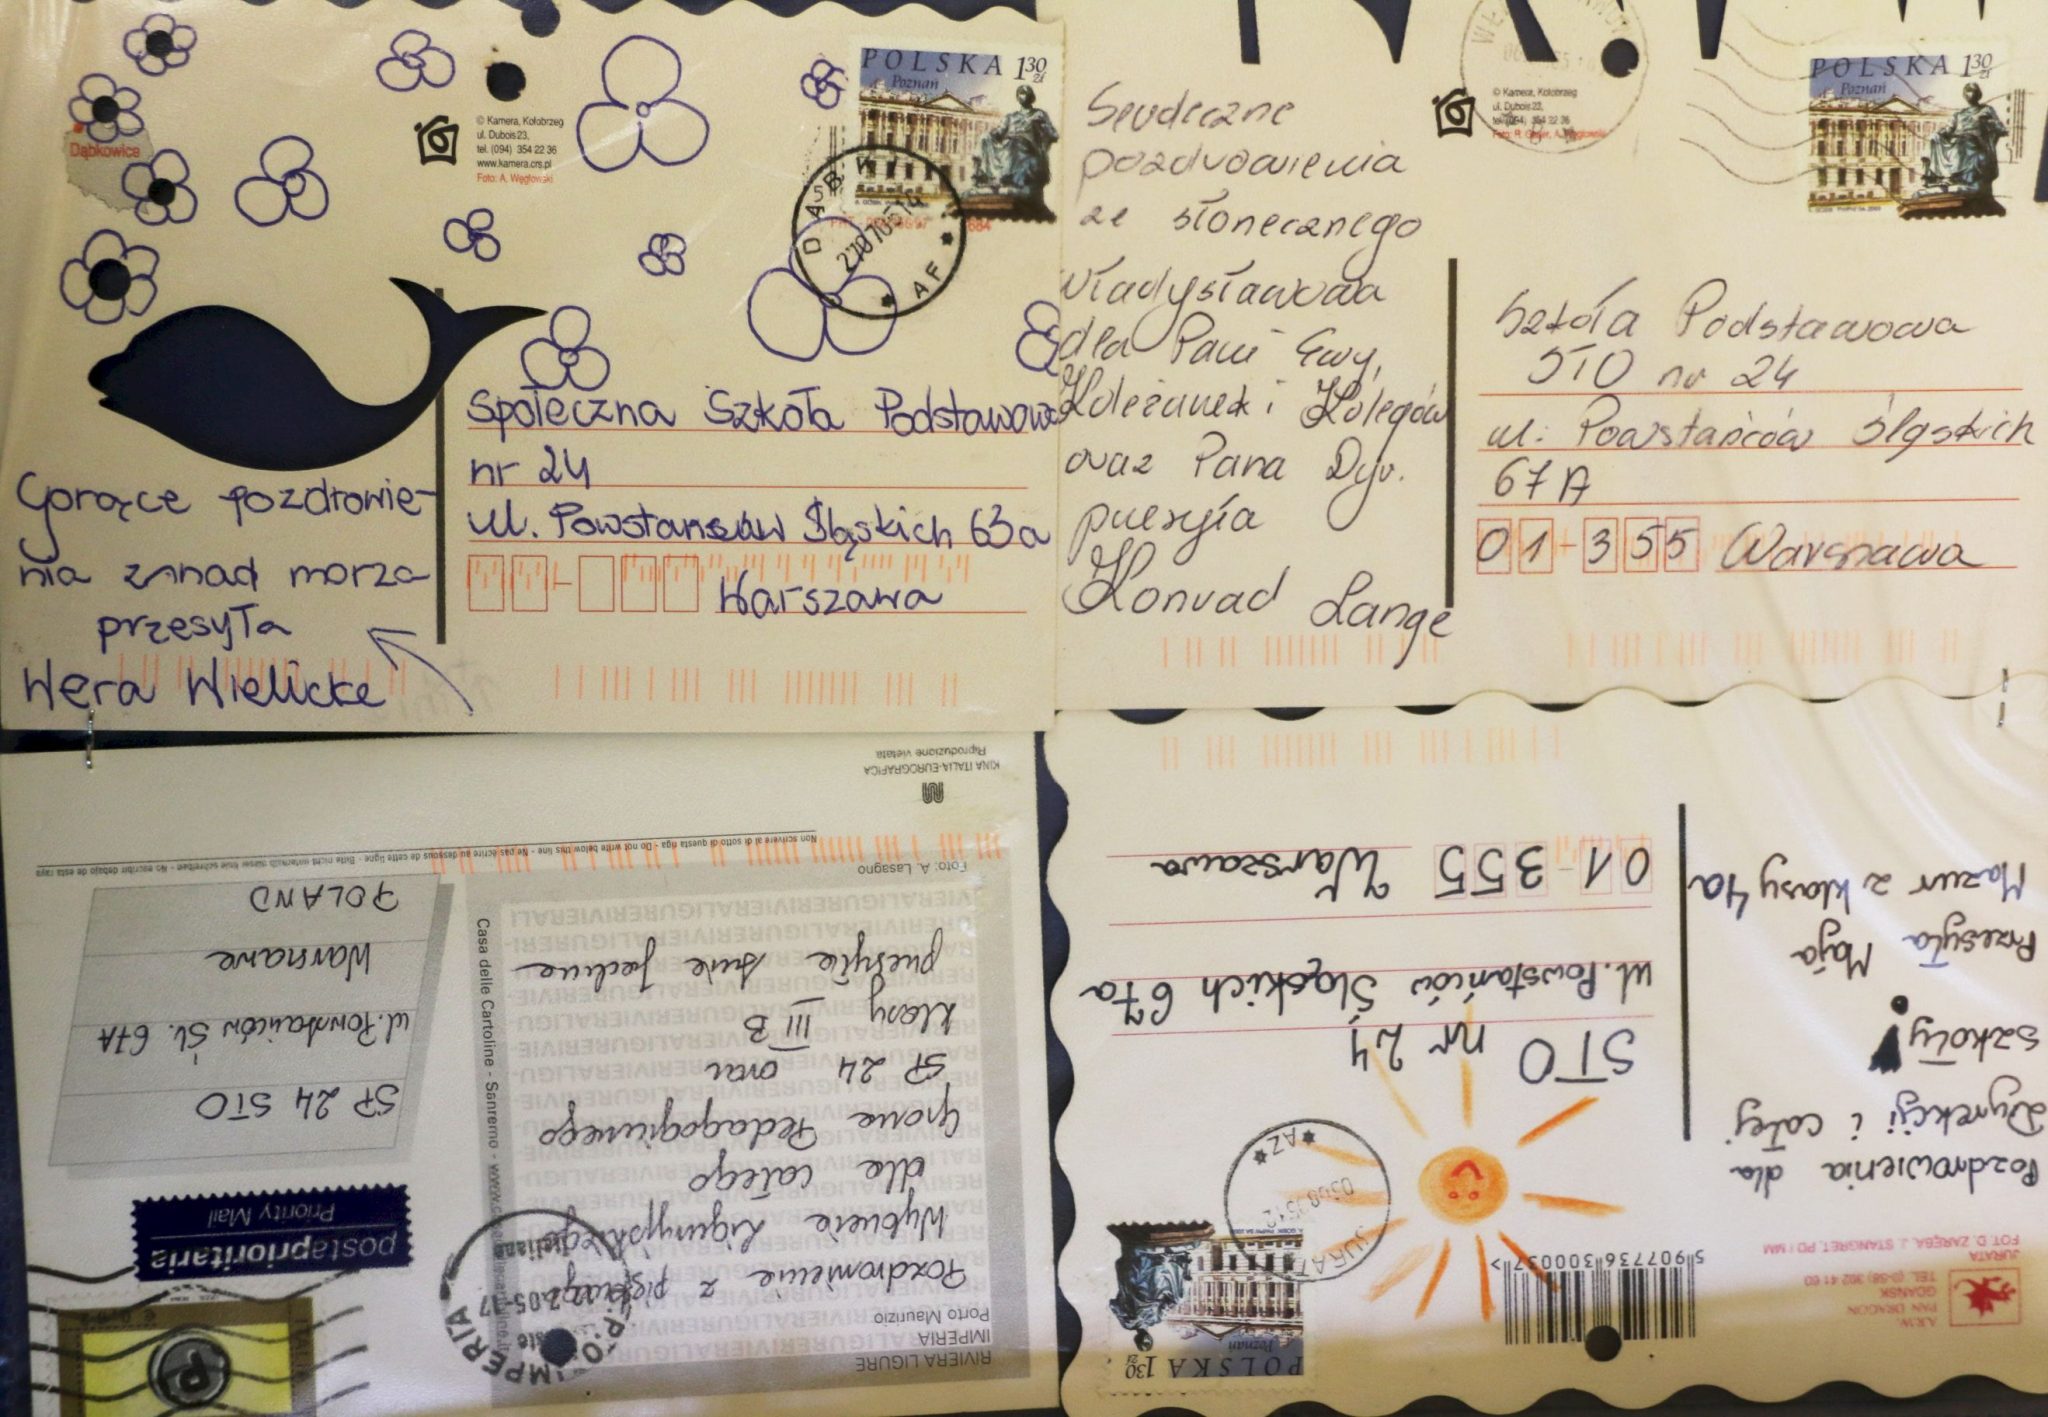 Dąbkowice
© Kamera, Kołobrzeg
ul. Dubois 23,
tel. (094) 354 22 36
www.kamera.crs.pl
Foto: A. Węgłowski
POLSKA 1 30 zł
Poznań
Gorące pozdrowie-
nia znad morza
przesyła
Wera Wielicke
Społeczna Szkoła Podstawowa
nr 24
ul. Powstańców Śląskich 63a
Warszawa
© Kamera, Kołobrzeg
ul. Dubois 23,
tel. (094) 354 22 36
POLSKA 1 30 zł
Poznań
Serdeczne
pozdrowienia
ze słonecznego
Władysławowa
dla Pani Ewy,
Koleżanek i Kolegów
oraz Pana Dyr.
przesyła
Konrad Lange
Szkoła Podstawowa
STO nr 24
ul. Powstańców Śląskich
67A
01-355 Warszawa
RIVIERA LIGURE
IMPERIA
Porto Maurizio
Pozdrowienie z pięknego
Wybrzeża Liguryjskiego
dla całego
Grona Pedagogicznego
SP 24 oraz
klasy III B
przesyła
Foto: A. Lasagno
Casa delle Cartoline - Sanremo
postaprioritaria
Priority Mail
SP 24 STO
ul. Powstańców Śl. 67A
Warszawa
POLAND
Non scrivere al di sotto di questa riga - Do not write below this line - Ne pas écrire au dessous de cette ligne - Bitte nicht unterhalb dieser linie schreiben - No escribir debajo de esta raya
KINA ITALIA-EUROGRAFICA
Riproduzione vietata
IMPERIA
A.R.W.
PAN DRAGON
GDAŃSK
TEL. (0-58) 302 41 60
JURATA
FOT. D. ZARĘBA, J. STANGRET, PD / MM
5 907736 300037 >
POLSKA 1 30 zł
Poznań
JURATA
Pozdrowienia dla
Dyrekcji i całej
szkoły!
Przesyła Maja
Mazur z klasy 4a
STO nr 24
ul. Powstańców Śląskich 67a
01-355 Warszawa